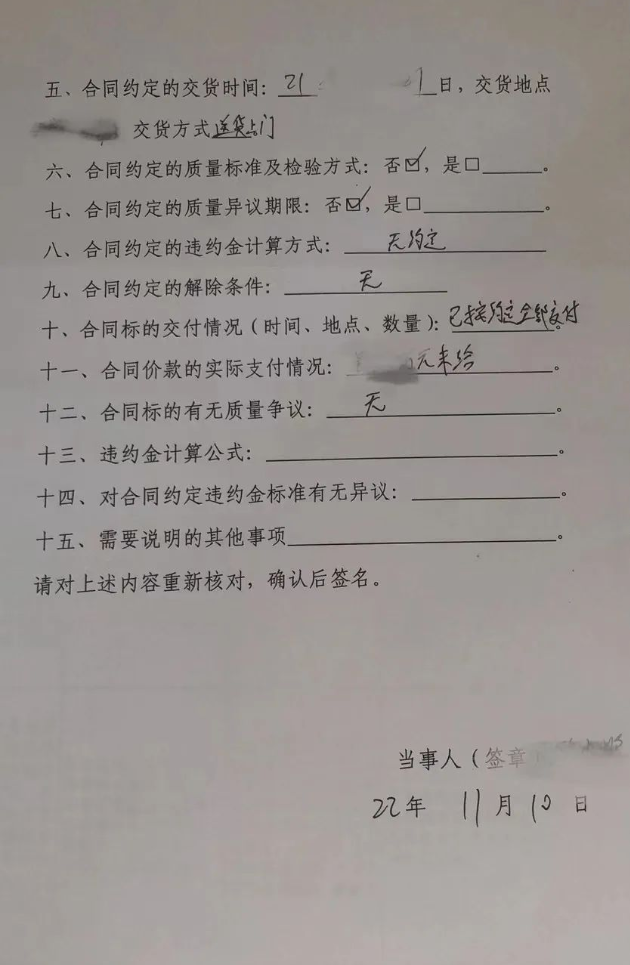 五、合同约定的交货时间：21 1日，交货地点
交货方式送货上门
六、合同约定的质量标准及检验方式：否☑，是□______。
七、合同约定的质量异议期限：否☑，是□____________。
八、合同约定的违约金计算方式：无约定
九、合同约定的解除条件：无
十、合同标的交付情况（时间、地点、数量）：已按约定全部交付。
十一、合同价款的实际支付情况：元未给。
十二、合同标的有无质量争议：无。
十三、违约金计算公式：____________。
十四、对合同约定违约金标准有无异议：____________。
十五、需要说明的其他事项____________。
请对上述内容重新核对，确认后签名。
当事人（签章
22年 11月 10日